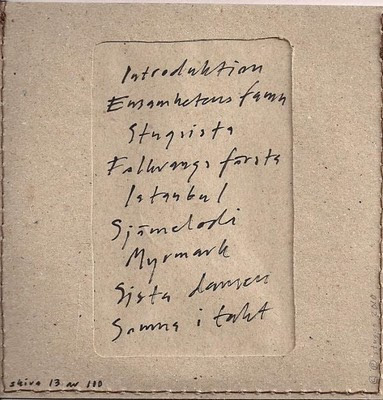 Introduktion
Ensamhetens famn
Stugsista
Folkvangs första
Istanbul
Sjämelodi
Myrmark
Sista dansen
Somna i takt
skiva 13 av 100